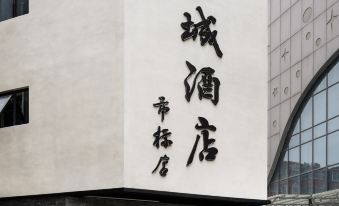 城酒店
市标店